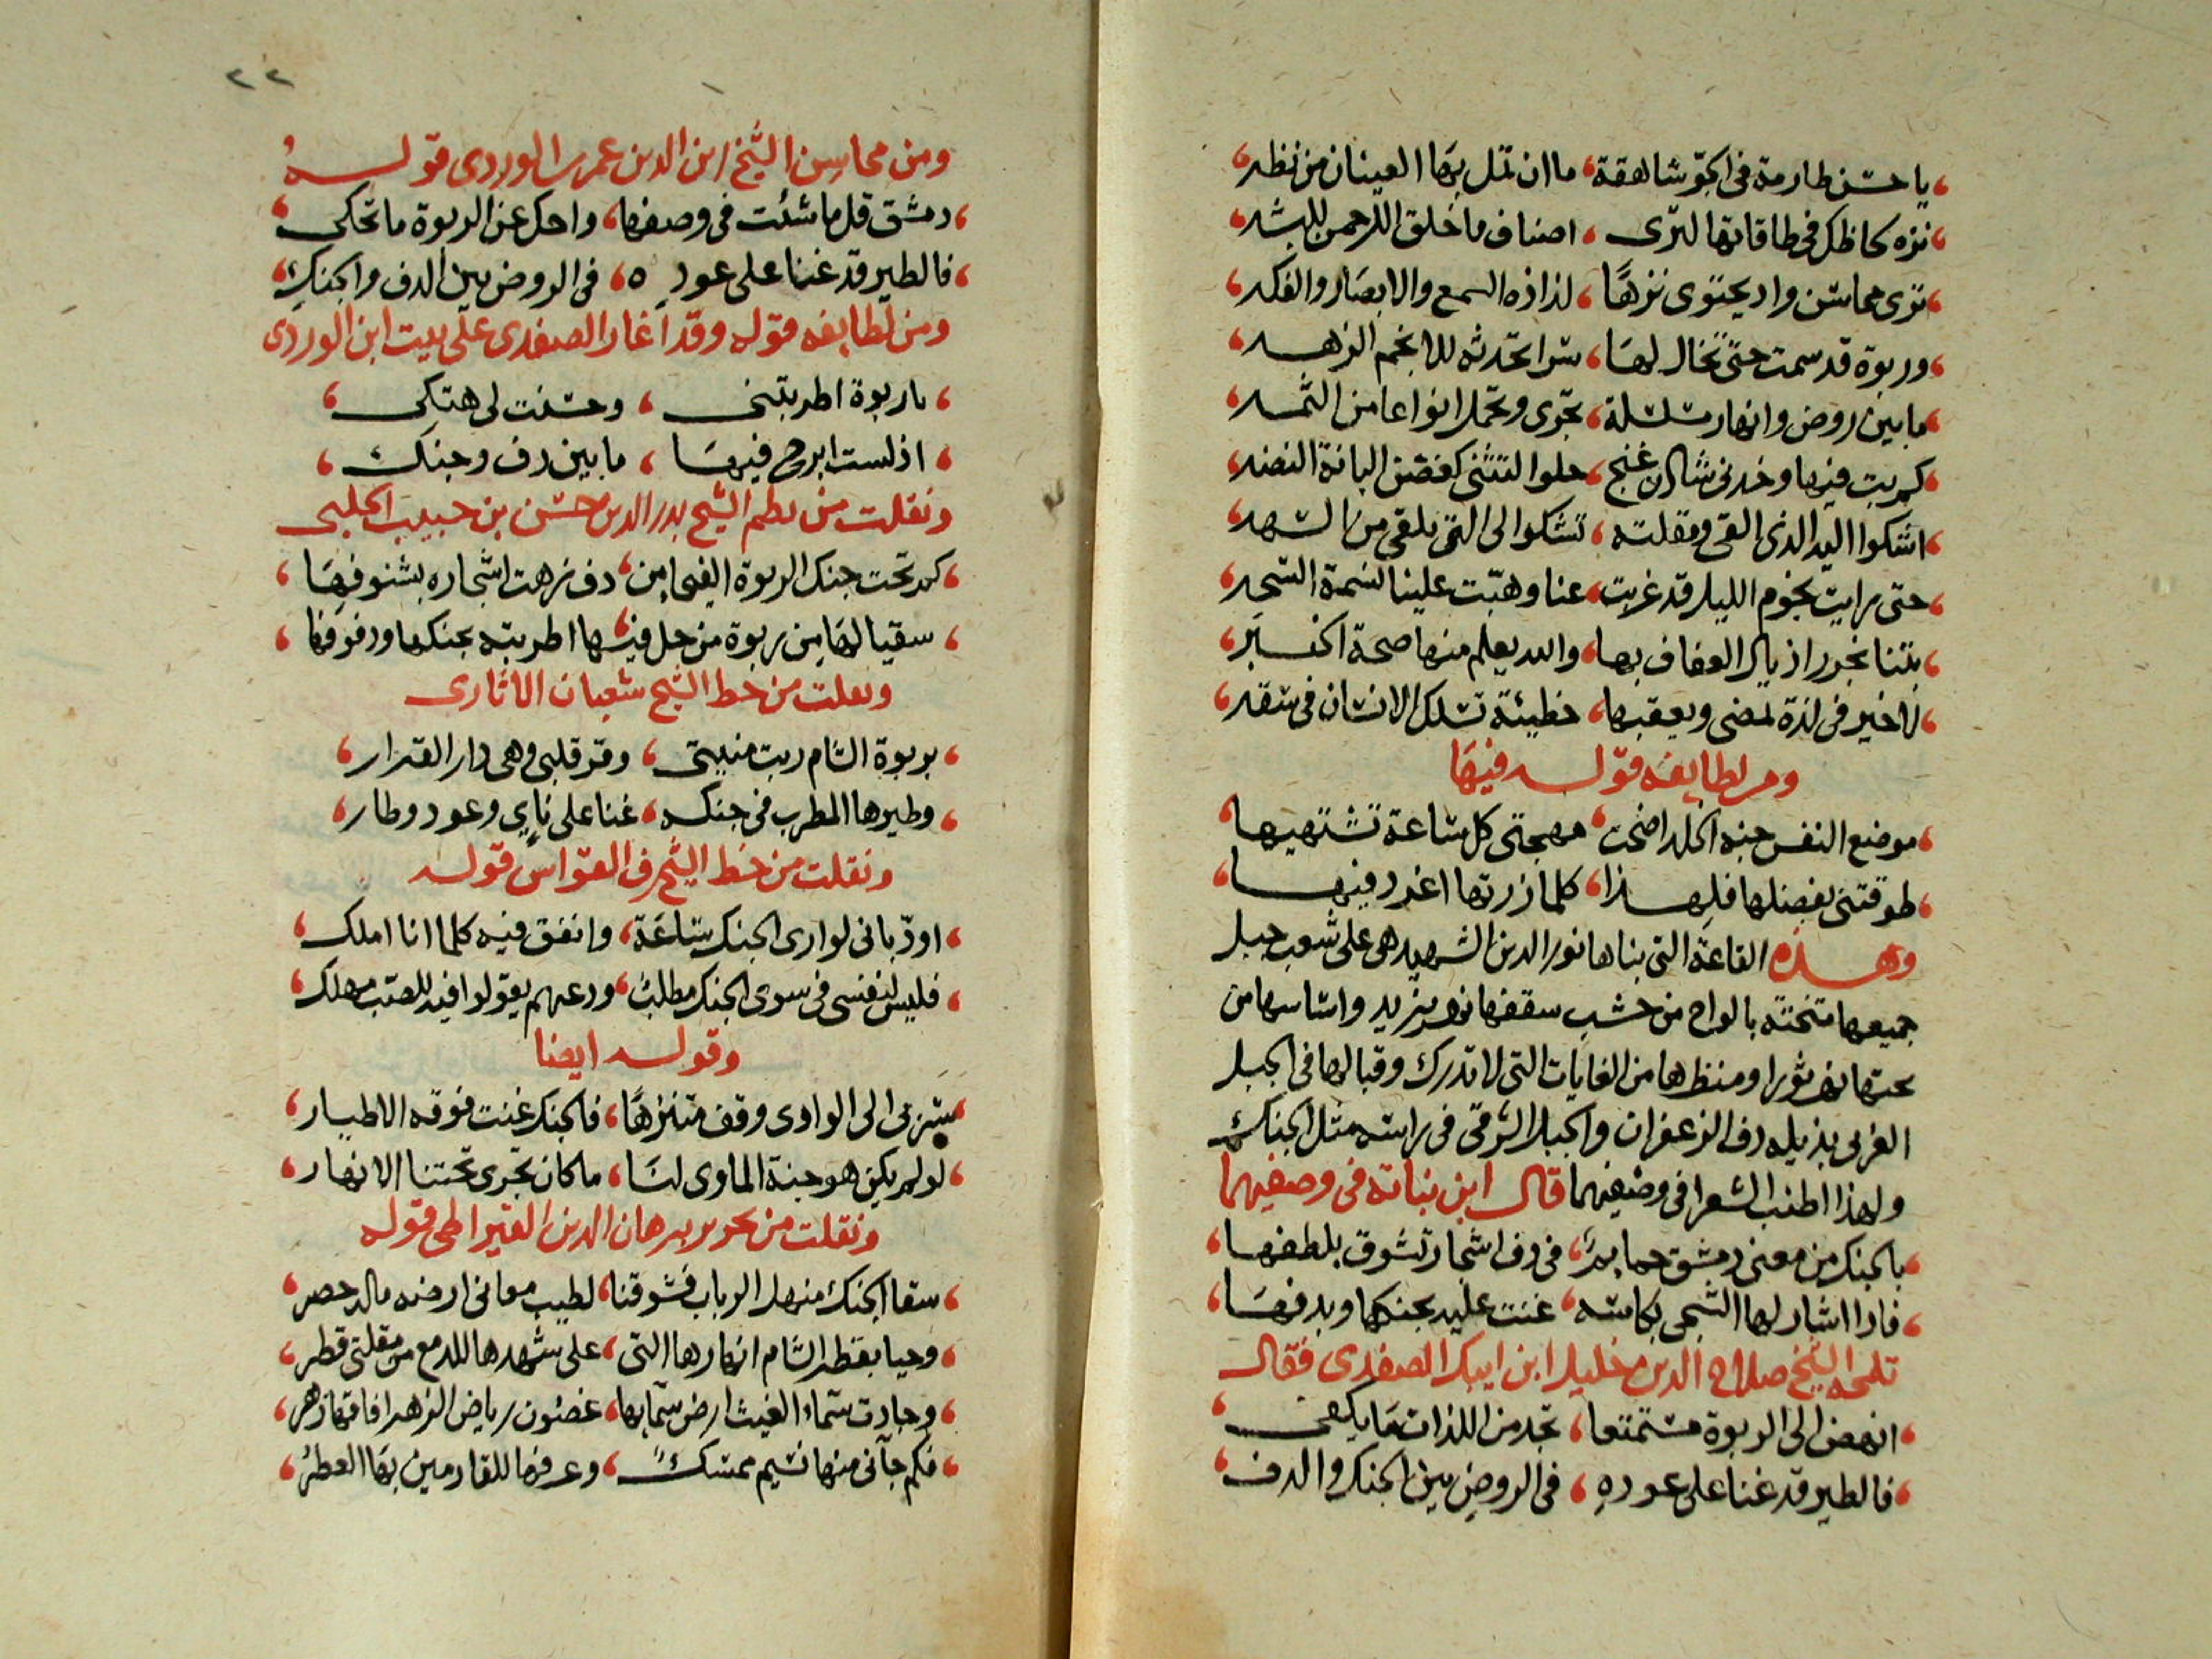 يا حسن طارمة فى الجوّ شاهقة، ما ان تمل بها العينان من نظر،
نزه لحاظك فى طاقاتها لترى، اصناف ما خلق الرحمن للبشر،
ترى محاسن واد يحتوى نزهًا، لذاذه السمع والابصار والفكر،
وربوة قد سمت حتى تخال لها، سرا تحدثه للانجم الزهر،
ما بين روض وانهار مسلسلة، تجرى وتحمل انواعا من الثمر،
كم بت فيها وخدنى شادن غنج، حلو التثنى كغصن البانة النضر،
اشكوا اليه الذى القى ومقلته، تشكوا الى التى يلقى من السهر،
حتى رايت نجوم الليل قد غربت، عنا وهبّت علينا نسمة السحر،
بتنا نجرر اذيال العفاف بها، والله يعلم منها صحة الخبر،
لا خير فى لذة تمضى ويعقبها، خطيئة تسلك الانسان فى سقر،
ومن لطايفه قوله فيها
موضع النفس جنه الخلد اضحت، مهجتى كل ساعة تشتهيها،
طوقتنى بفضلها فلهذا، كلما زرتها اغرد فيها،
وهذه القاعة التى بناها نور الدين الشهيد هى على شعب جبل
جميعها متخته بالواح من خشب سقفها نهر يزيد واساسها من
تحتها نهر ثورا ومنظرها من الغايات التى لا تدرك وقبالها فى الجبل
الغربى بذيله دف الزعفران والجبل الشرقى فى راسه مثل الجنك
ولهذا اطنب الشعرا فى وصفيهما قال ابن نباتة فى وصفيهما
بالجنك من مغنى دمشق حمايم، فى دف اشجار تشوق بلطفها،
فاذا اشار لها الشجى بكاسه، غنت عليه بجنكها وبدفها،
تلمحه الشيخ صلاح الدين خليل ابن ايبك الصفدى فقال
انهض الى الربوة مستمتعا، تجد من اللذات ما يكفى،
فالطير قد غنا على عوده، فى الروض بين الجنك والدف،
٢٢
ومن محاسن الشيخ زين الدين عمر بن الوردى قوله
دمشق قل ما شئت فى وصفها، واحك عن الربوة ما تحكى،
فالطير قد غنا على عوده، فى الروض بين الدف والجنك،
ومن لطايفه قوله وقد اغار الصفدى على بيت ابن الوردى
يا ربوة اطربتنى، وحسنت لى هتكى،
اذ لست ابرح فيها، ما بين دف وجنك،
ونقلت من نظم الشيخ بدر الدين حسن بن حبيب الحلبى
كم تحت جنك الربوة الفيحا من، دف زهت اشجاره بشنوفها،
سقيا لها من ربوة من حل فيها، اطربته بجنكها ودفوفها،
ونقلت من خط الشيخ شعبان الاثارى
بربوة الشام ربت منيتى، وقر قلبى وهى دار القرار،
وطيرها المطرب فى جنكه، غنا على ناىٍ وعود وطار،
ونقلت من خط الشيخ شرف القواس قوله
اودّ بانى لو ارى الجنك ساعة، وانفق فيه كلما انا املك،
فليس لنفسى فى سوى الجنك مطلبٌ، ودعهم يقولوا فيه للصب مهلك،
وقوله ايضا
سر بى الى الوادى وقف متنزهًا، فالجنك غنت فوقه الاطيار،
لو لم يكن هو جنة الماوى لنا، ما كان تجرى تحتنا الانهار،
ونقلت من تحرير برهان الدين القيراطى قوله
سقا الجنك منهل الرباب فشوقنا، لطيب مغانى ارضه ماله حصر،
وحيا بقطر الشام انهارها التى، على شهدها للدمع من مقلتى قطر،
وجادت سماء الغيث ارض سمايها، غصون رياض الزهر افاقها زهر،
فكم جآنى منها نسيم ممسكٌ، وعرفها للقادمين بها العطرُ،